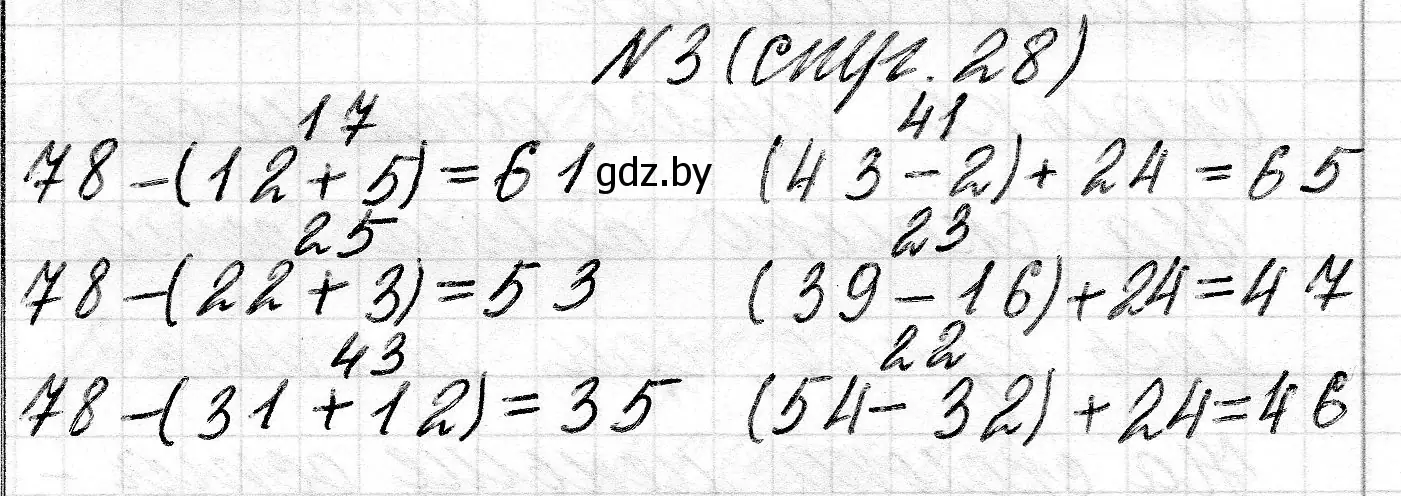 №3 (спуг. 28)
17 41
78-(12+5)=61 gdz.by (43-2)+24=65
25 23
78-(22+3)=53 (39-16)+24=47
43 22
78-(31+12)=35 (54-32)+24=46